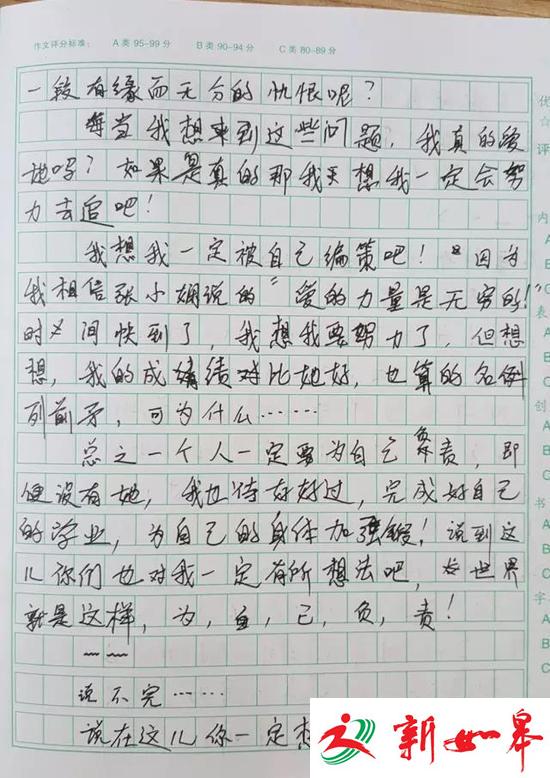 作文评分标准： A类95-99分 B类90-94分 C类80-89分
一段有缘而无分的仇恨呢？
每当我想来到这些问题，我真的爱
她吗？如果是真的那我天想我一定会努
力去追吧！
我想我一定被自己编策吧！“因为
我相信张小娴说的“爱的力量是无穷的！”
时间快到了，我想我要努力了，但想
想，我的成绩对比她好，也算的名例
列前矛，可为什么……
总之一个人一定要为自己负责，即
便没有她，我也待好好过，完成好自己
的学业，为自己的身体加强锻！说到这
儿你们也对我一定有所想法吧，世界
就是这样，为，自，己，负，责！
~~
说不完……
说在这儿你一定想
优
☆
评
内
A
B
C
表
A
B
C
创
A
B
C
书
A
B
C
字
A
B
C
新如皋